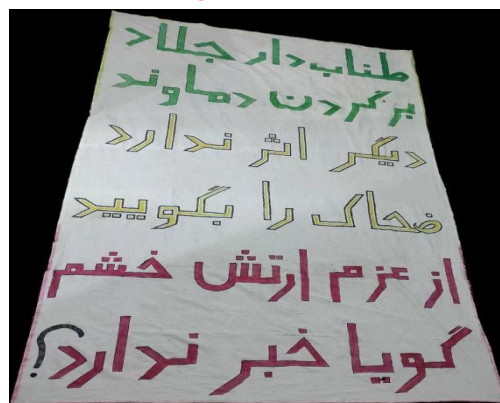 طناب دار جلاد
بر گردن دماوند
دیگر اثر ندارد
ضحاک را بگویید
از عزم ارتش خشم
گویا خبر ندارد؟